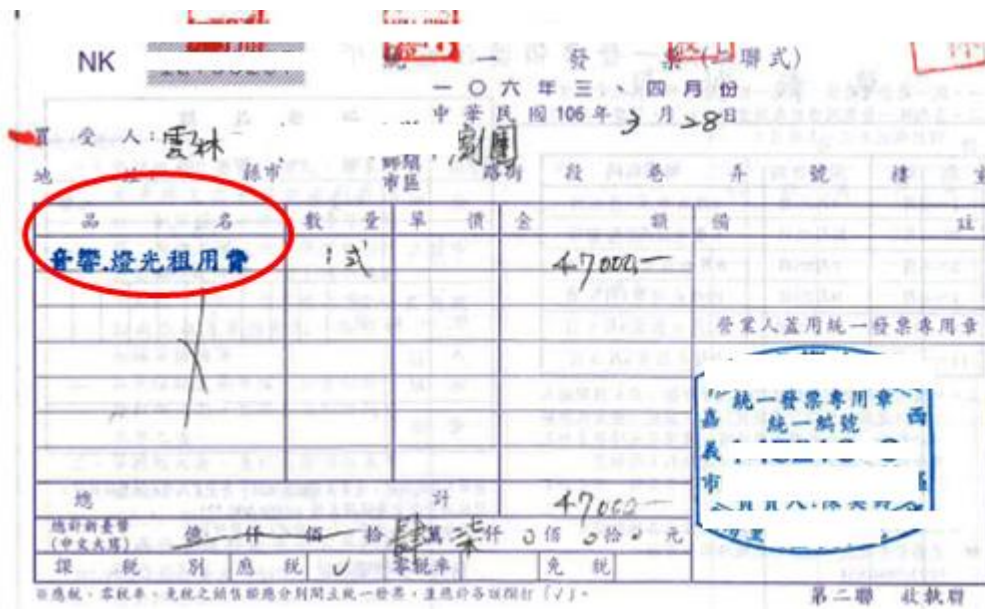 NK
統一發票(二聯式)
一〇六年三、四月份
中華民國106年3月28日
買受人:雲林 劇團
地 址: 縣市 鄉鎮市區 路街 段 巷 弄 號 樓 室
品 名 數 量 單 價 金 額 備 註
音響.燈光租用費 1式 47000-
營業人蓋用統一發票專用章
統一發票專用章
統一編號
嘉義市 西區
總 計 47000-
總計新臺幣(中文大寫) 億 仟 佰 拾 肆萬 柒仟 0佰 0拾 0元
課 稅 別 應 稅 ✓ 零稅率 免 稅
※應稅、零稅率、免稅之銷售額應分別開立統一發票,並應於各該欄打「✓」。
第二聯 收執聯